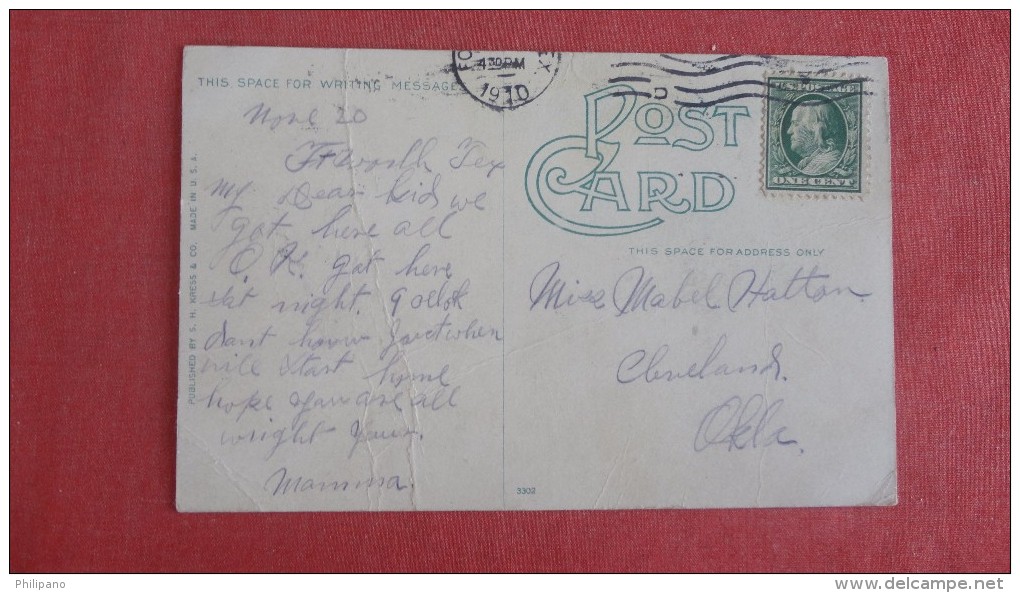 THIS SPACE FOR WRITING MESSAGE
4 30 PM
1910
U.S. POSTAGE
ONE CENT
POST CARD
THIS SPACE FOR ADDRESS ONLY
PUBLISHED BY S. H. KRESS & CO. MADE IN U. S. A.
20
Ft Worth Tex
My Dear kid we
got here all
O.K. got here
at night.
dont know just when
will start home
hope you are all
wright yours.
Mamma.
Miss Mabel Hatton.
Cleveland.
Okla.
3302
Philipano
www.delcampe.net